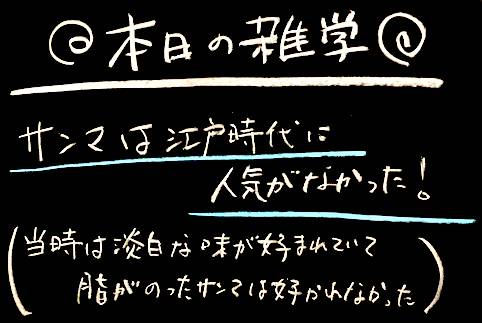 本日の雑学
サンマは江戸時代に
人気がなかった!
(当時は淡白な味が好まれていて
脂がのったサンマは好かれなかった)